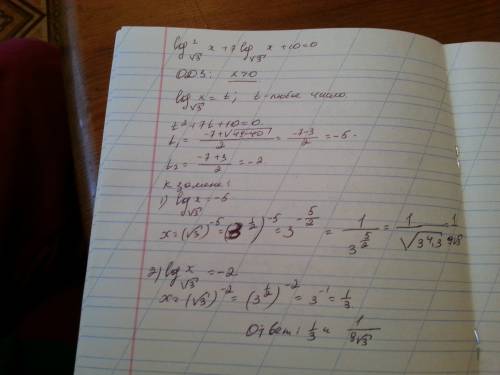 log²_√3 x + 7 log_√3 x + 10 = 0
О.О.З: x>0
log_√3 x = t; t - любое число
t² + 7t + 10 = 0.
t₁ = (-7+√(49-40))/2 = (-7-3)/2 = -5.
t₂ = (-7+3)/2 = -2
К замене:
1) log_√3 x = -5
x = (√3)^-5 = (3^(1/2))^-5 = 3^(-5/2) = 1/3^(5/2) = 1/√(3⁴·3) = 1/9√3
2) log_√3 x = -2
x = (√3)^-2 = (3^(1/2))^-2 = 3^-1 = 1/3.
Ответ: 1/3 и 1/9√3